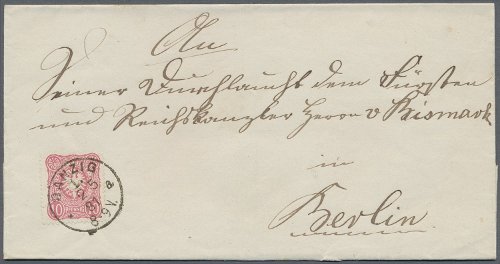 An
Seiner Durchlaucht dem Fürsten
und Reichskanzler Herrn v Bismark
in
Berlin
DANZIG
10